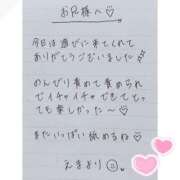 お兄様へ♡
今日は遊びに来てくれて
ありがとうございました
のんびり責めて責められ
てイチャイチャできてとっ
ても楽しかった〜♡
またいっぱい舐めるね♡
えまより